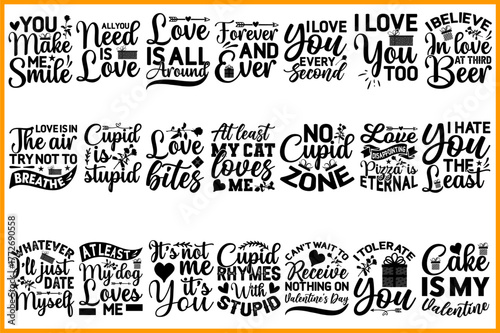 YOU
Make
ME
Smile
ALL YOU
Need
IS
Love
Love
IS ALL
Around
Forever
AND
Ever
I LOVE
You
EVERY
second
I LOVE
You
TOO
I BELIEVE
In love
AT THIRD
Beer
LOVE IS IN
The air
TRY NOT TO
BREATHE
Cupid
is
stupid
Love
bites
At least
MY CAT
loves
ME
NO
Cupid
ZONE
Love
IS
DISAPPOINTING
Pizza is
ETERNAL
I HATE
YOU
THE
Least
WHATEVER
I'll just
DATE
Myself
AT LEAST
My dog
LOVES
Me
It's not
me
it's
You
Cupid
RHYMES
With
STUPID
CAN'T WAIT TO
Receive
NOTHING ON
Valentine's Day
I TOLERATE
You
Cake
IS MY
Valentine